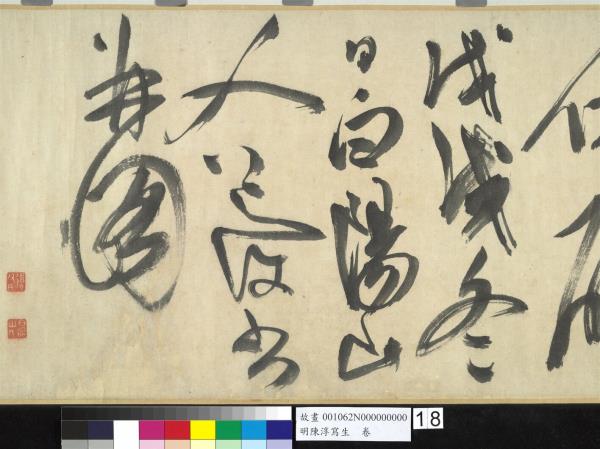 戊戌冬
日白陽山
人道復書
并圖
故畫 001062N000000000
明陳淳寫生 卷
18